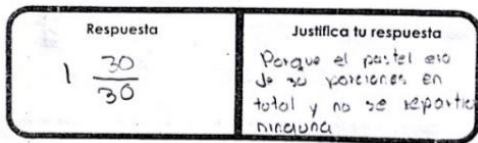 Respuesta
1 30/30
Justifica tu respuesta
Porque el pastel era
de 30 porciones en
total y no se repartio
ninguna